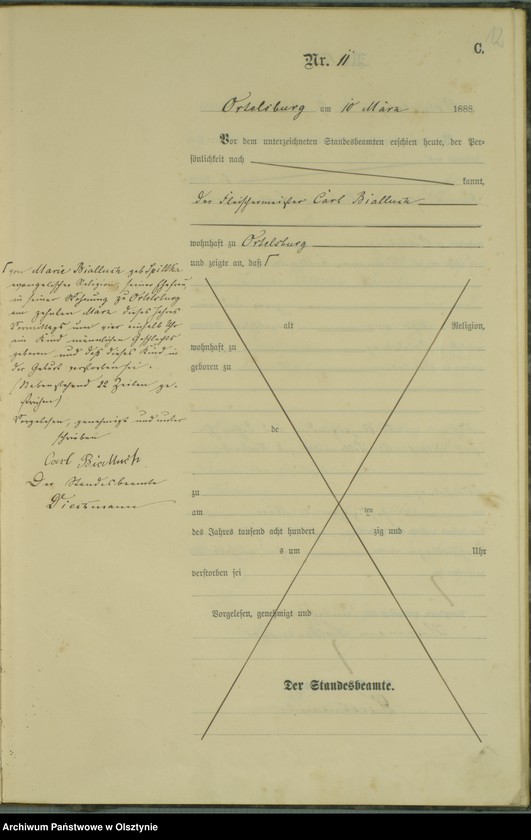 12
C.
Nr. 11
Ortelsburg am 10 März 1888.
Vor dem unterzeichneten Standesbeamten erschien heute, der Per-
sönlichkeit nach
kannt,
der Fleischermeister Carl Bialluch
wohnhaft zu Ortelsburg
und zeigte an, daß Γ
Γ von Marie Bialluch geb
evangelischer Religion, seiner Ehefrau,
in seiner Wohnung zu Ortelsburg
am zehnten März dieses Jahres
Vormittags um vier einhalb Uhr
ein Kind männlichen Geschlechts
geboren und daß dieses Kind in
der Geburt verstorben sei.
(Nebenstehend 12 Zeilen ge-
strichen)
Vorgelesen, genehmigt und unter
schrieben
Carl Bialluch
Der Standesbeamte
alt Religion,
wohnhaft zu
geboren zu
de
zu
am ten
des Jahres tausend acht hundert zig und
s um Uhr
verstorben sei
Vorgelesen, genehmigt und
Der Standesbeamte.
Archiwum Państwowe w Olsztynie